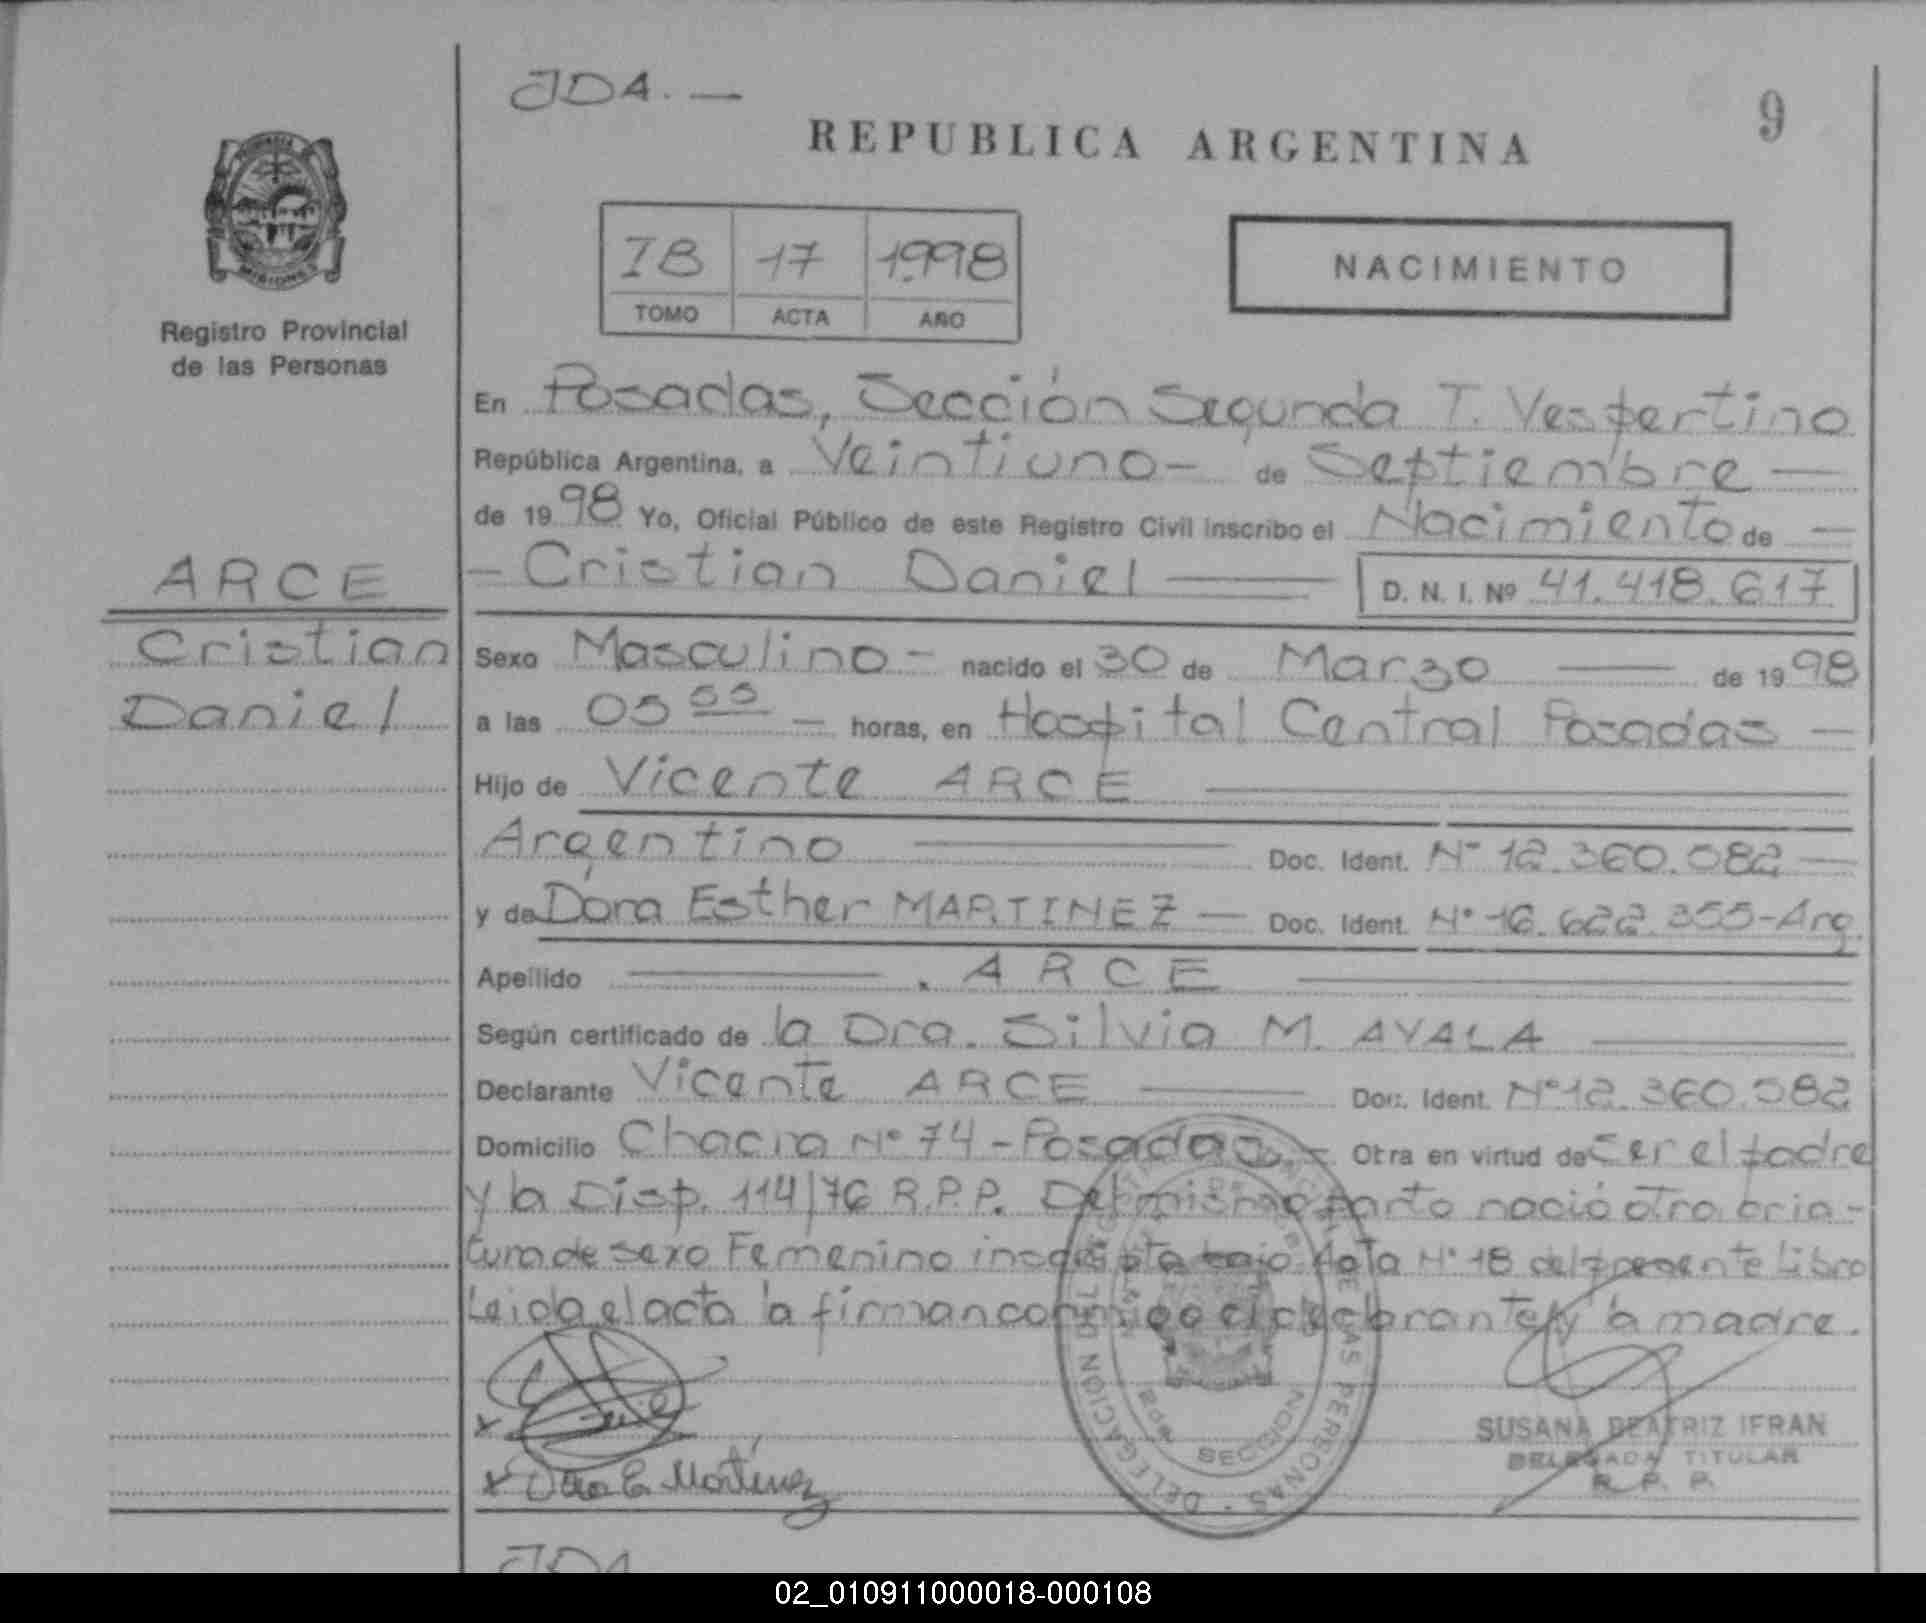 JDA. —
9
REPUBLICA ARGENTINA
IB 17 1998
TOMO ACTA AÑO
NACIMIENTO
Registro Provincial
de las Personas
En Posadas, Sección Segunda T. Vespertino
República Argentina, a Veintiuno - de Septiembre —
de 1998 Yo, Oficial Público de este Registro Civil inscribo el Nacimiento de —
- Cristian Daniel — D. N. I. Nº 41.418.617
ARCE
Cristian
Daniel
Sexo Masculino - nacido el 30 de Marzo — de 1998
a las 05 55 — horas, en Hospital Central Posadas —
Hijo de Vicente ARCE —
Argentino — Doc. Ident. Nº 12.360.082 —
y de Dora Esther MARTINEZ — Doc. Ident. Nº 16.622.355 - Arg.
Apellido — . ARCE —
Según certificado de la Dra. Silvia M. AYALA —
Declarante Vicente ARCE — Doc. Ident. Nº 12.360.082
Domicilio Chacra Nº 74 - Posadas. — Otra en virtud de ser el padre
y la Disp. 114/76 R.P.P. Del mismo parto nació otra cria-
tura de sexo Femenino inscripta bajo Acta Nº 18 del presente Libro
Leida el acta la firman conmigo el declarante y la madre.
x
x Dora E. Martinez
DELEGACION
DE LAS PERSONAS
2da SECCION
SUSANA BEATRIZ IFRAN
DELEGADA TITULAR
R. P. P.
JDA
02_010911000018-000108